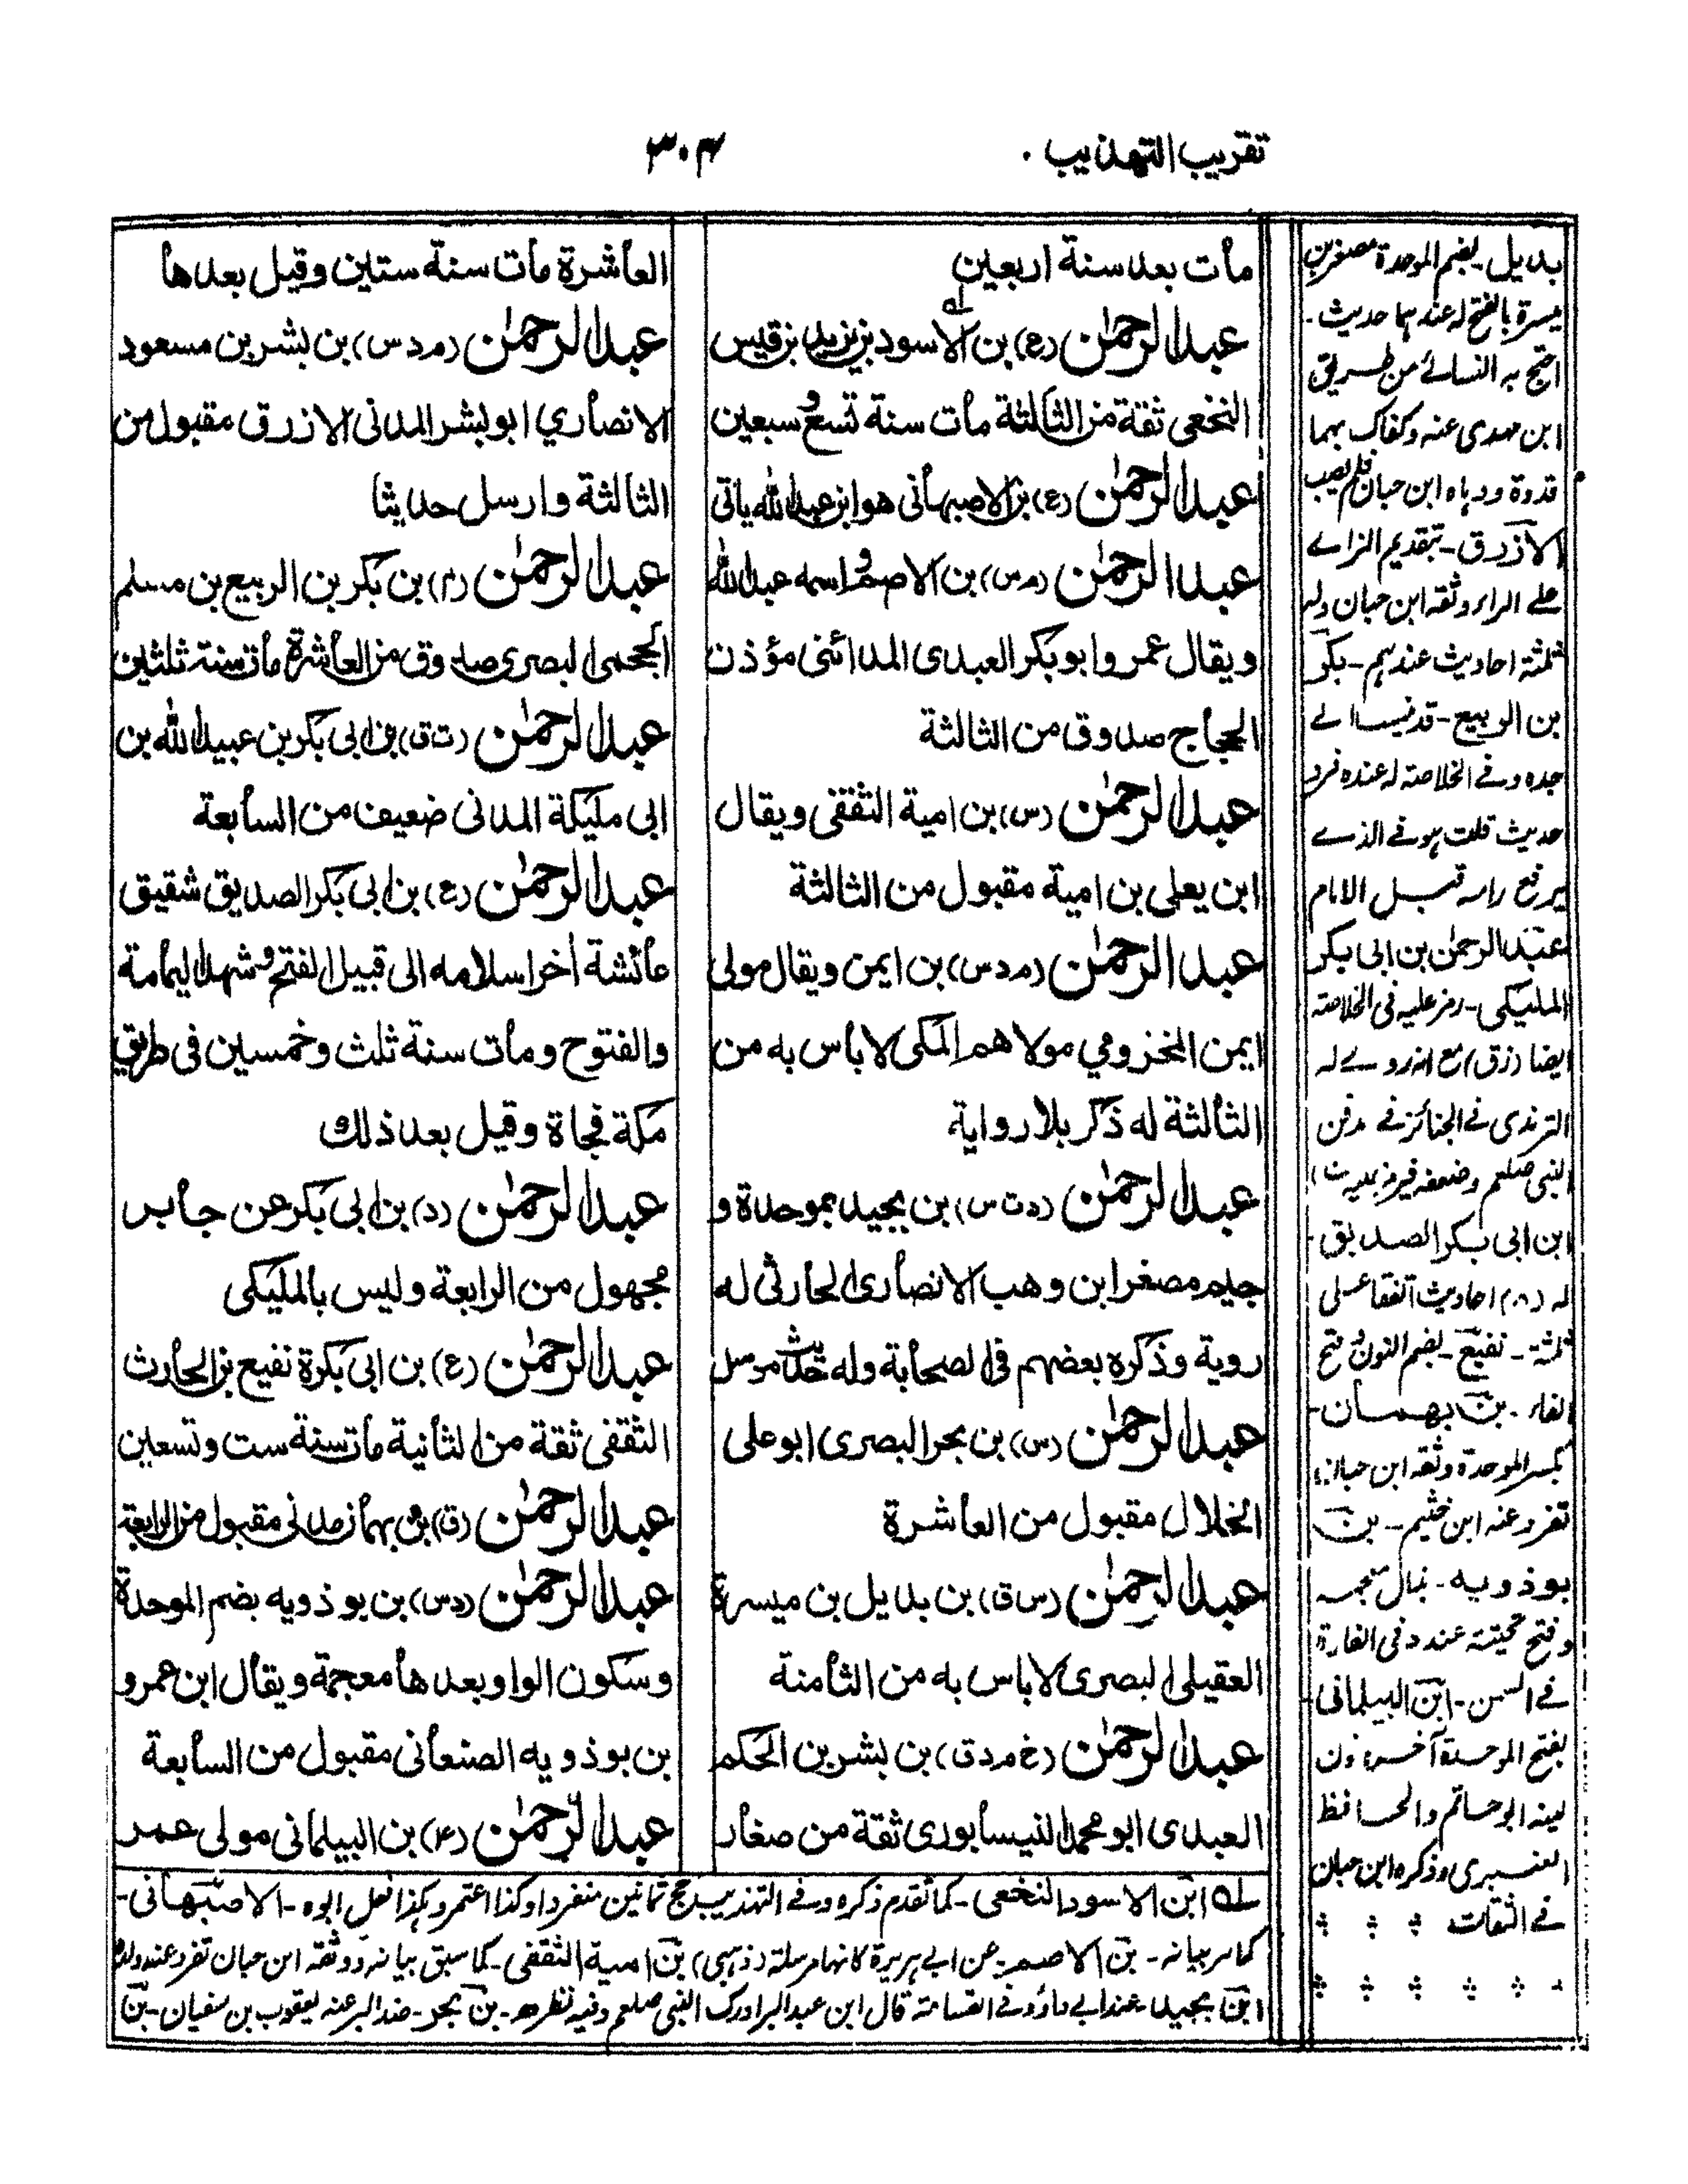 تقريب التهذيب
٣٠٤
مات بعد سنة اربعين
عبد الرحمٰن (ع) بن الاسود بن يزيد بن قيس
النخعى ثقة من الثالثة مات سنة تسع و سبعين
عبد الرحمٰن (ع) بن الاصبهانى هو ابن عبد الله ياتى
عبد الرحمٰن (م س) بن الاصم و اسمه عبد الله
ويقال عمرو ابو بكر العبدى المدائنى مؤذن
الحجاج صدوق من الثالثة
عبد الرحمٰن (س) بن امية الثقفى ويقال
ابن يعلى بن امية مقبول من الثالثة
عبد الرحمٰن (م د س) بن ايمن ويقال مولى
ايمن المخزومي مولاهم المكى لا باس به من
الثالثة له ذكر بلا رواية
عبد الرحمٰن (د ت س) بن بجيد بموحدة و
جيم مصغر ابن وهب الانصارى الحارثى له
روية وذكره بعضهم فى الصحابة وله حديث مرسل
عبد الرحمٰن (س) بن بحر البصرى ابو على
الخلال مقبول من العاشرة
عبد الرحمٰن (س ق) بن بديل بن ميسرة
العقيلى البصرى لا باس به من الثامنة
عبد الرحمٰن (خ م د ق) بن بشر بن الحكم
العبدى ابو محمد النيسابورى ثقة من صغار
العاشرة مات سنة ستين وقيل بعدها
عبد الرحمٰن (م د س) بن بشر بن مسعود
الانصاري ابو بشر المدنى الازرق مقبول من
الثالثة وارسل حديثا
عبد الرحمٰن (م) بن بكر بن الربيع بن مسلم
الجمحى البصرى صدوق من العاشرة مات سنة ثلثين
عبد الرحمٰن (ت ق) بن ابى بكر بن عبيد الله بن
ابى مليكة المدنى ضعيف من السابعة
عبد الرحمٰن (ع) بن ابى بكر الصديق شقيق
عائشة اخر اسلامه الى قبيل الفتح و شهد اليمامة
والفتوح ومات سنة ثلث وخمسين فى طريق
مكة فجاة وقيل بعد ذلك
عبد الرحمٰن (د) بن ابى بكر عن جابر
مجهول من الرابعة وليس بالمليكى
عبد الرحمٰن (ع) بن ابى بكرة نفيع بن الحارث
الثقفى ثقة من الثانية مات سنة ست وتسعين
عبد الرحمٰن (ق) بن بهمان مدنى مقبول من الرابعة
عبد الرحمٰن (د س) بن بوذويه بضم الموحدة
وسكون الواو بعدها معجمة ويقال ابن عمرو
بن بوذويه الصنعانى مقبول من السابعة
عبد الرحمٰن (٤) بن البيلمانى مولى عمر
بديل - بضم الموحدة مصغر بن
ميسرة بالفتح له عندهما حديث -
احتج به النسائے من طريق
ابن مهدى عنه وكفاك بهما
قدوة ودهاه ابن حبان فلم يصب
الازرق - بتقديم الزاے
علے الراء وثقه ابن حبان وله
ثلثة احاديث عندهم - بكر
بن الربيع - قد ينسب الے
جده وفے الخلاصة له عنده فرد
حديث قلت هو فے الذے
يرفع راسه قبل الامام
عبد الرحمٰن بن ابى بكر
المليكى - رمز عليه فى الخلاصة
ايضا (ز ق) مع انه روے له
الترمذى فے الجنائز فے دفن
النبى صلعم وضعفه
ابن ابى بكر الصديق -
له (٨) احاديث اتفقا على
ثلثة - نفيع - بضم النون و فتح
الفاء - بن بهمان -
بكسر الموحدة وثقه ابن حبان
تفرد عنه ابن خثيم - بن
بوذويه - بذال معجمه
وفتح تحيتة عند د فى الفارة
فے السمن - ابن البيلمانى
بفتح الموحدة آخره نون
لينه ابو حاتم والحافظ
العنبرى وذكره ابن حبان
فے الثقات
له ابن الاسود النخعى - كما تقدم ذكره وفے التهذيب حج ثمانين منفردا وكذا اعتمر وهكذا فعل ابوه - الاصبهانى -
كما مر بيانه - بن الاصم - عن ابى هريرة كانها مرسلة (ذهبى) بن امية الثقفى - كما سبق بيانه ووثقه ابن حبان تفرد عنه ولده
ابن بجيد - عند ابى داؤد فے القسامة قال ابن عبد البر ادرك النبى صلعم وفيه نظر - بن بحر - عنه يعقوب بن سفيان - بن